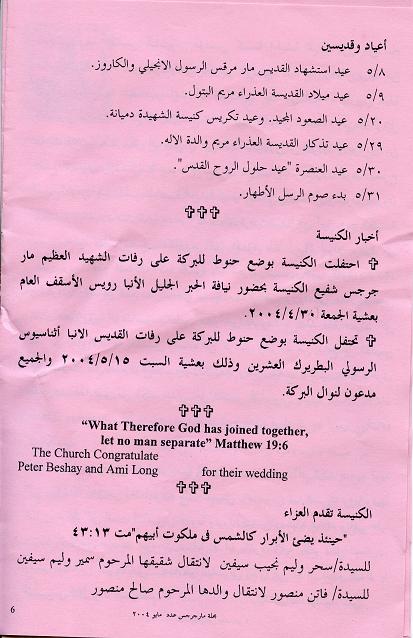 أعياد وقديسين
٥/٨ عيد استشهاد القديس مار مرقس الرسول الانجيلي والكاروز.
٥/٩ عيد ميلاد القديسة العذراء مريم البتول.
٥/٢٠ عيد الصعود المجيد. وعيد تكريس كنيسة الشهيدة دميانة.
٥/٢٩ عيد تذكار القديسة العذراء مريم والدة الاله.
٥/٣٠ عيد العنصرة "عيد حلول الروح القدس".
٥/٣١ بدء صوم الرسل الأطهار.
✞✞✞
أخبار الكنيسة
✞ احتفلت الكنيسة بوضع حنوط للبركة على رفات الشهيد العظيم مار
جرجس شفيع الكنيسة بحضور نيافة الحبر الجليل الأنبا رويس الأسقف العام
بعشية الجمعة ٢٠٠٤/٤/٣٠.
✞ تحتفل الكنيسة بوضع حنوط للبركة على رفات القديس الانبا أثناسيوس
الرسولي البطريرك العشرين وذلك بعشية السبت ٢٠٠٤/٥/١٥ والجميع
مدعون لنوال البركة.
✞✞✞
“What Therefore God has joined together,
let no man separate” Matthew 19:6
The Church Congratulate
Peter Beshay and Ami Long for their wedding
✞✞✞
الكنيسة تقدم العزاء
"حينئذ يضئ الأبرار كالشمس فى ملكوت أبيهم"مت ٤٣:١٣
للسيدة/ سحر وليم نجيب سيفين لانتقال شقيقها المرحوم سمير وليم سيفين
للسيدة/ فاتن منصور لانتقال والدها المرحوم صالح منصور
مجلة مارجرجس عدد مايو ٢٠٠٤
6